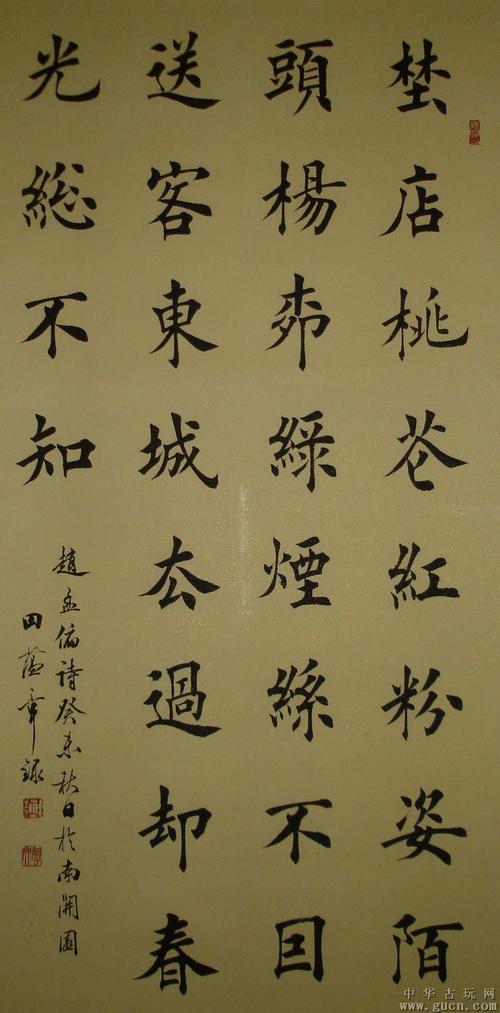 埜店桃花紅粉姿陌
頭楊柳綠煙絲不因
送客東城去過却春
光総不知
趙孟俯詩癸未秋日於南開園
田蘊章錄
中华古玩网
www.gucn.com